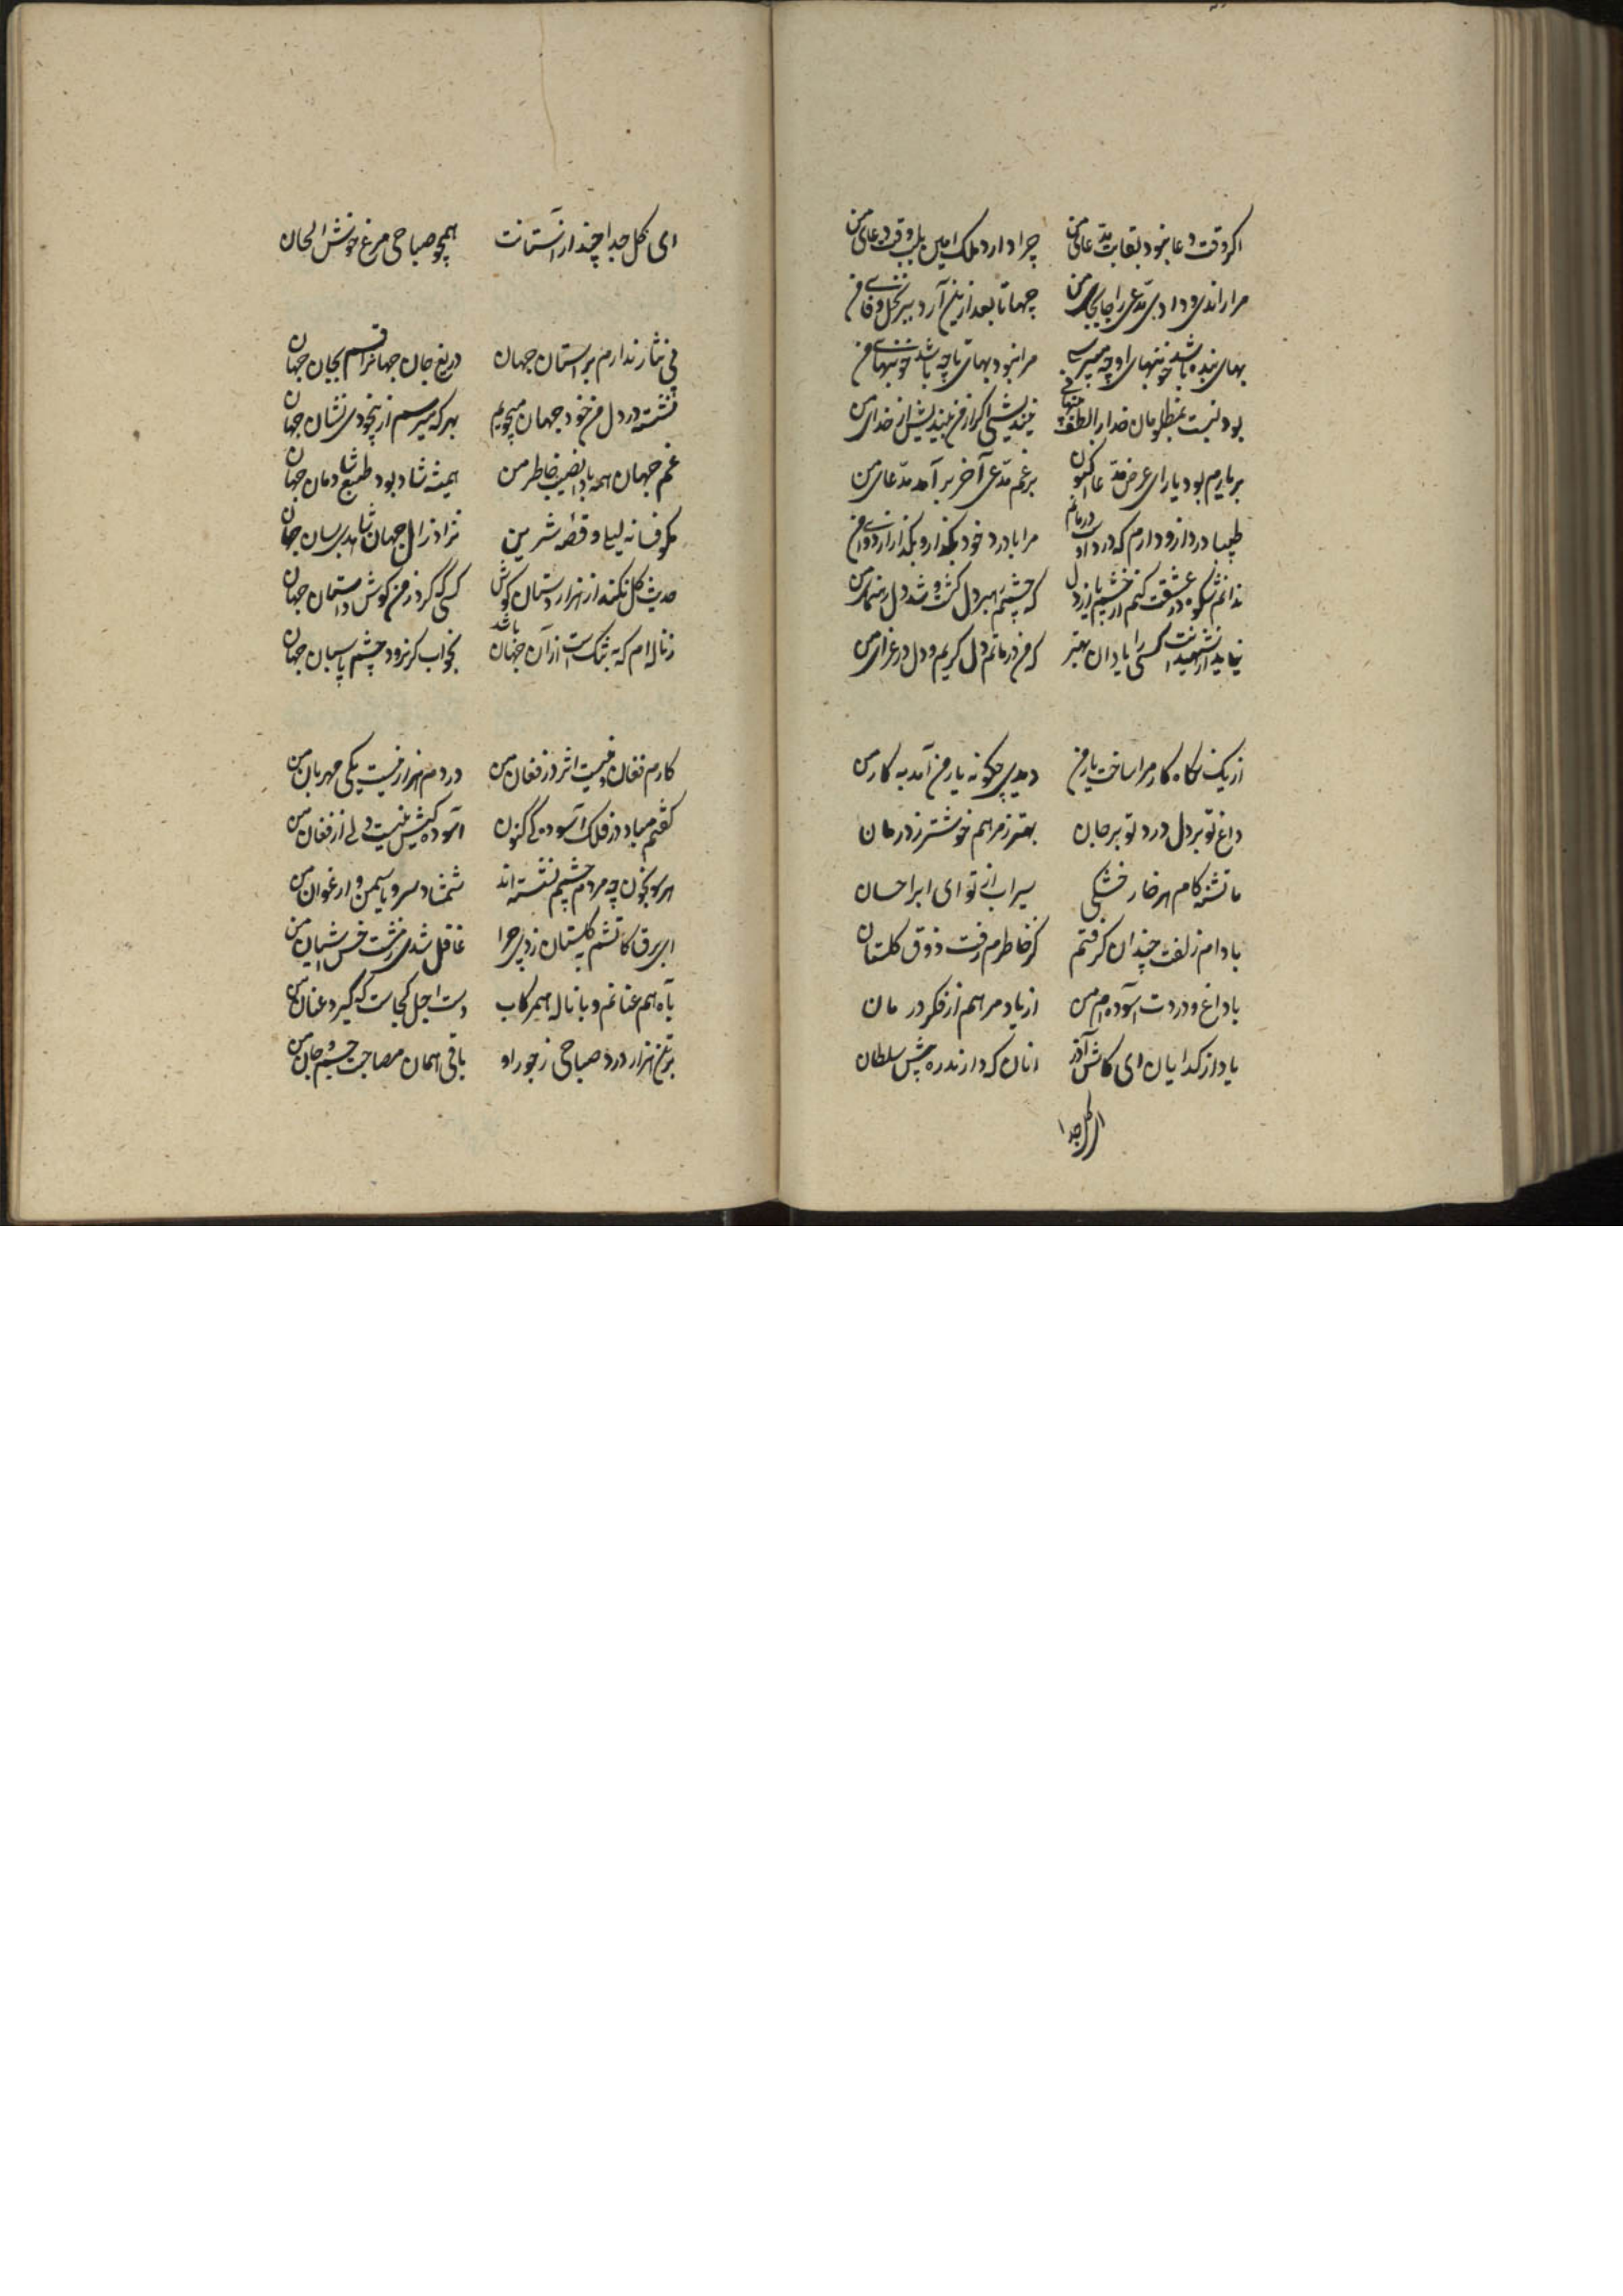 اگر وقت دعا نبود بقایت مدعای من چرا دارد ملک آمین بلب وقت دعای من
مرا راندی و دادی مدعی را جا بجای من جهاتا بعد ازین آرد ببر نخل وفای من
بهای بنده باشد خونبهای او چه میپرسی مرا نبود بهائی تا چه باشد خونبهای من
بود نسبت بمظلومان خدا را لطف نیندیشی اگر از من بیندیش از خدای من
بر یارم بود یارای عرض مدعا اکنون برغم مدعی آخر بر آمد مدعای من
طبیبا درد ازو دارم که درد او مرا با درد خود بگذار و بگذر از دوای من
ندانم شکوه در عشقت کنم از چشم یا از دل که چشمم رهبر دل گشت و شد دل رهنمای من
نیاید از شهیدانت کسی را یاد ازان بهتر که من در ماتم دل گریم و دل در عزای من
از یک نگاه کار مرا ساخت یار من دیدی چگونه یار من آمد به کار من
داغ تو بر دل درد تو بر جان بهتر ز مرهم خوشتر ز درمان
ما تشنه کام هر خار خشکی سیراب از تو ای ابر احسان
با دام زلفت چندان گرفتم کز خاطرم رفت ذوق گلستان
با داغ و دردت آسوده ام من از یاد مرهم از فکر درمان
یاد از گدایان ای کاش آرند آنان که دارند ره پیش سلطان
ای گل جدا
ای گل جدا چند از آستانت همچو صباحی مرغ خوش الحان
نی نثار ندارم بر آستان جهان دریغ جان جهانرا قسم بجان جهان
نشسته در دل من خود جهان میجویم بهر که میرسم از بیخودی نشان جهان
غم جهان همه بادا نصیب خاطر من همیشه شاد بود طبع شادمان جهان
مگو فسانه لیلی و قصه شیرین نزاد زال جهان شاهدی بسان جهان
حدیث گل نکند از هزار دستان گوش کسی که کرد ز من گوش داستان جهان
ز ناله ام که به تنگ است از آن جهان باشد بخواب گر نرود چشم پاسبان جهان
کارم فغان و نیست اثر در فغان من دردم هزار نیست یکی مهربان من
گفتم مباد در فلک آسوده کنون آسوده کیش نیست ولی از فغان من
هر سو بخون چه مردم چشمم نشسته اند شمشاد و سرو و یاسمن و ارغوان من
ای برق کاتشم به گلستان زدی چرا غافل شدی ز مشت خس آشیان من
با آه هم عنانم و با ناله همرکاب دست اجل کجاست که گیرد عنان من
بر تیغ هزار درد صباحی ز جور او باقی همان مصاحبت جسم و جان من